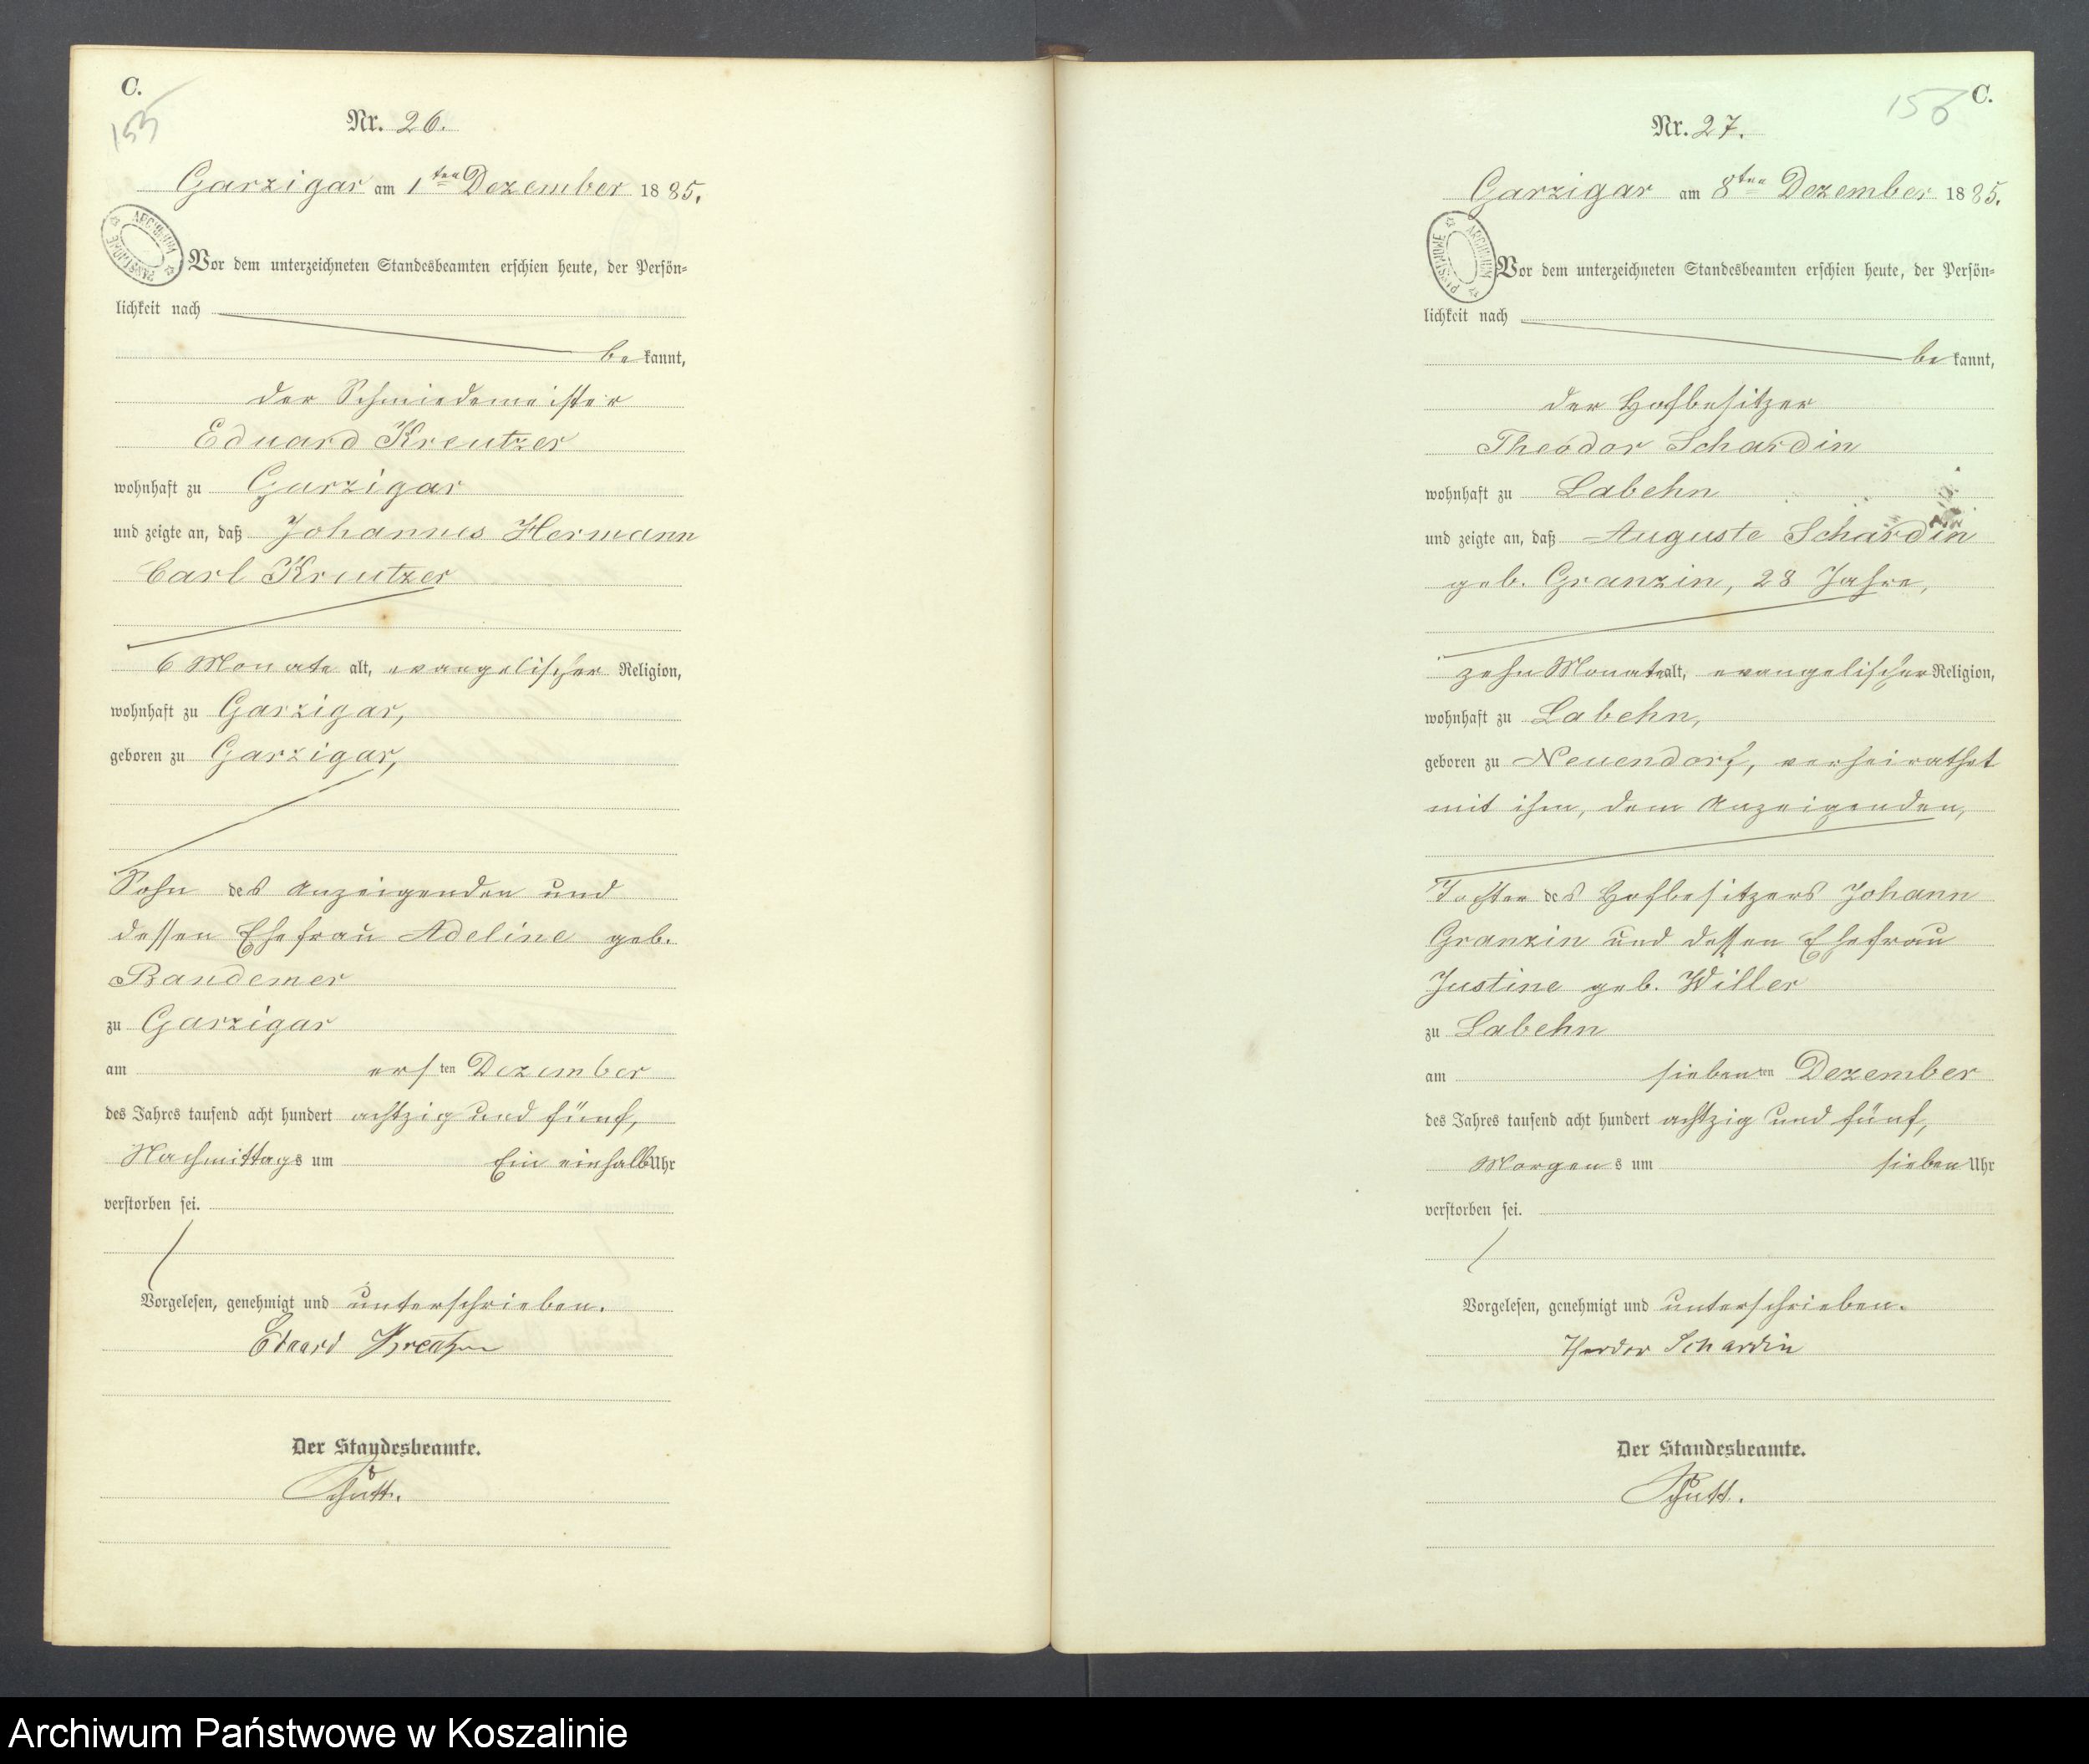 C.
155
Nr. 26.
Garzigar am 1ten Dezember 1885.
ARCHIWUM PAŃSTWOWE
Vor dem unterzeichneten Standesbeamten erschien heute, der Persön=
lichkeit nach
bekannt,
der Schmiedemeister
Eduard Kreutzer
wohnhaft zu Garzigar
und zeigte an, daß Johannes Hermann
Carl Kreutzer
6 Monate alt, evangelischer Religion,
wohnhaft zu Garzigar,
geboren zu Garzigar,
Sohn des Anzeigenden und
dessen Ehefrau Adeline geb.
Bandemer
zu Garzigar
am ersten Dezember
des Jahres tausend acht hundert achtzig und fünf,
Nachmittags um Ein einhalb Uhr
verstorben sei.
Vorgelesen, genehmigt und unterschrieben.
Eduard
Der Standesbeamte.
C.
156
Nr. 27.
Garzigar am 8ten Dezember 1885.
ARCHIWUM PAŃSTWOWE
Vor dem unterzeichneten Standesbeamten erschien heute, der Persön=
lichkeit nach
bekannt,
der Hofbesitzer
Theodor Schardin
wohnhaft zu Labehn
und zeigte an, daß Auguste Schardin
geb. Granzin, 28 Jahre,
zehn Monate alt, evangelischer Religion,
wohnhaft zu Labehn,
geboren zu Neuendorf, verheirathet
mit ihm, dem Anzeigenden,
Tochter des Hofbesitzers Johann
Granzin und dessen Ehefrau
Justine geb. Willer
zu Labehn
am siebenten Dezember
des Jahres tausend acht hundert achtzig und fünf,
Morgens um sieben Uhr
verstorben sei.
Vorgelesen, genehmigt und unterschrieben.
Theodor Schardin
Der Standesbeamte.
Archiwum Państwowe w Koszalinie